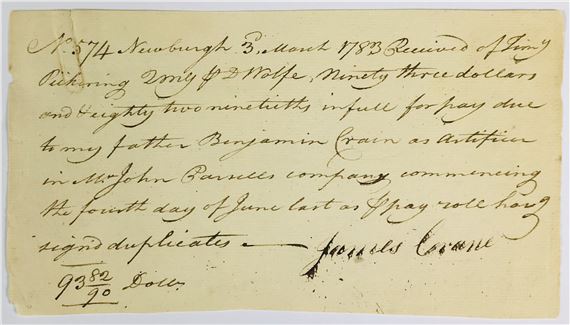 No. 574 Newburgh 3d. March 1783 Received of Timy
Pickering 2 mG ⅌ D Wolfe, Ninety three dollars
and eighty two ninetieths in full for pay due
to my father Benjamin Crain as Artificer
in Mr John Parsells company commencing
the fourth day of June last as ⅌ pay roll havg
signd duplicates — James Crane
93 82/90 Dolls